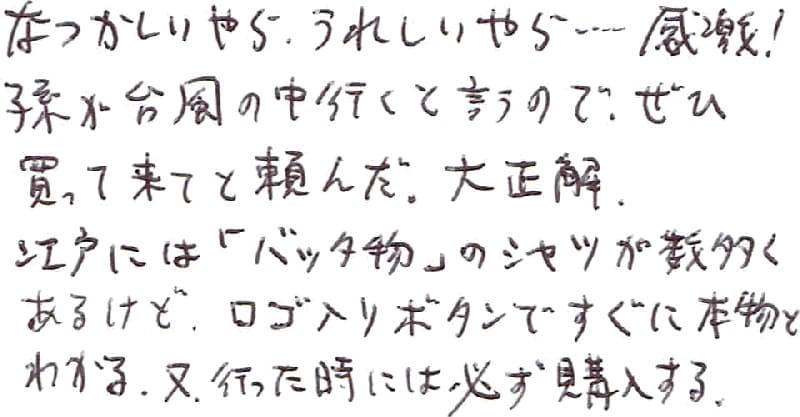 なつかしいやら、うれしいやら……感激!
孫が台風の中行くと言うので、ぜひ
買って来てと頼んだ。大正解.
江戸には「バッタ物」のシャツが数多く
あるけど、ロゴ入りボタンですぐに本物と
わかる.又、行った時には必ず購入する.